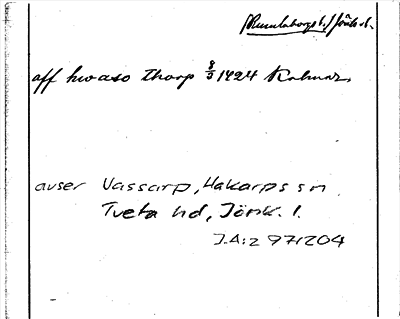 (Rumlaborgs l.) Jönk. l.
aff hwaso thorp 8/5 1424 Kalmar.
avser Vassarp, Hakarps sn
Tveta hd, Jönk. l.
J.A:2 97, 204